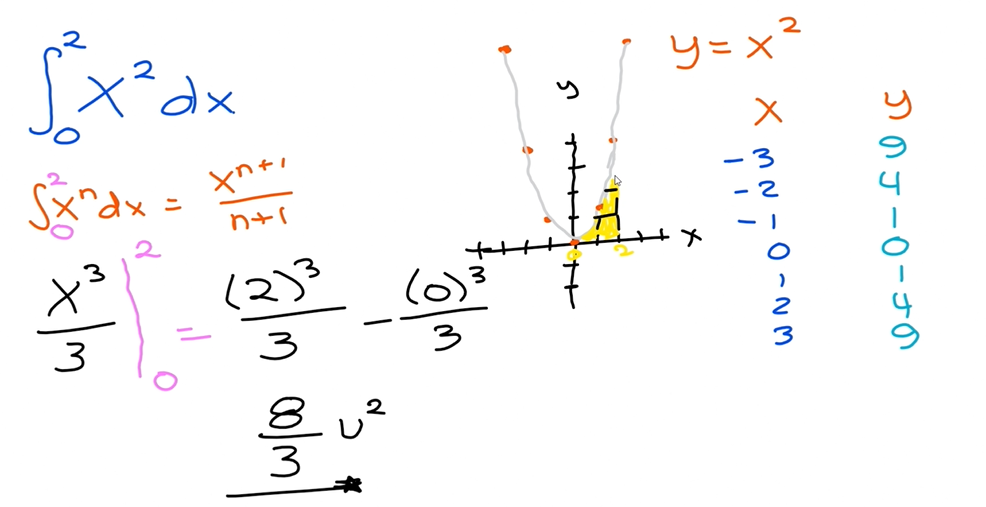 ∫₀² x² dx
∫₀² xⁿ dx = xⁿ⁺¹/n+1
x³/3 |₀² = (2)³/3 − (0)³/3
8/3 u²
y
x
0 2
y = x²
x y
-3 9
-2 4
-1 1
0 0
1 1
2 4
3 9